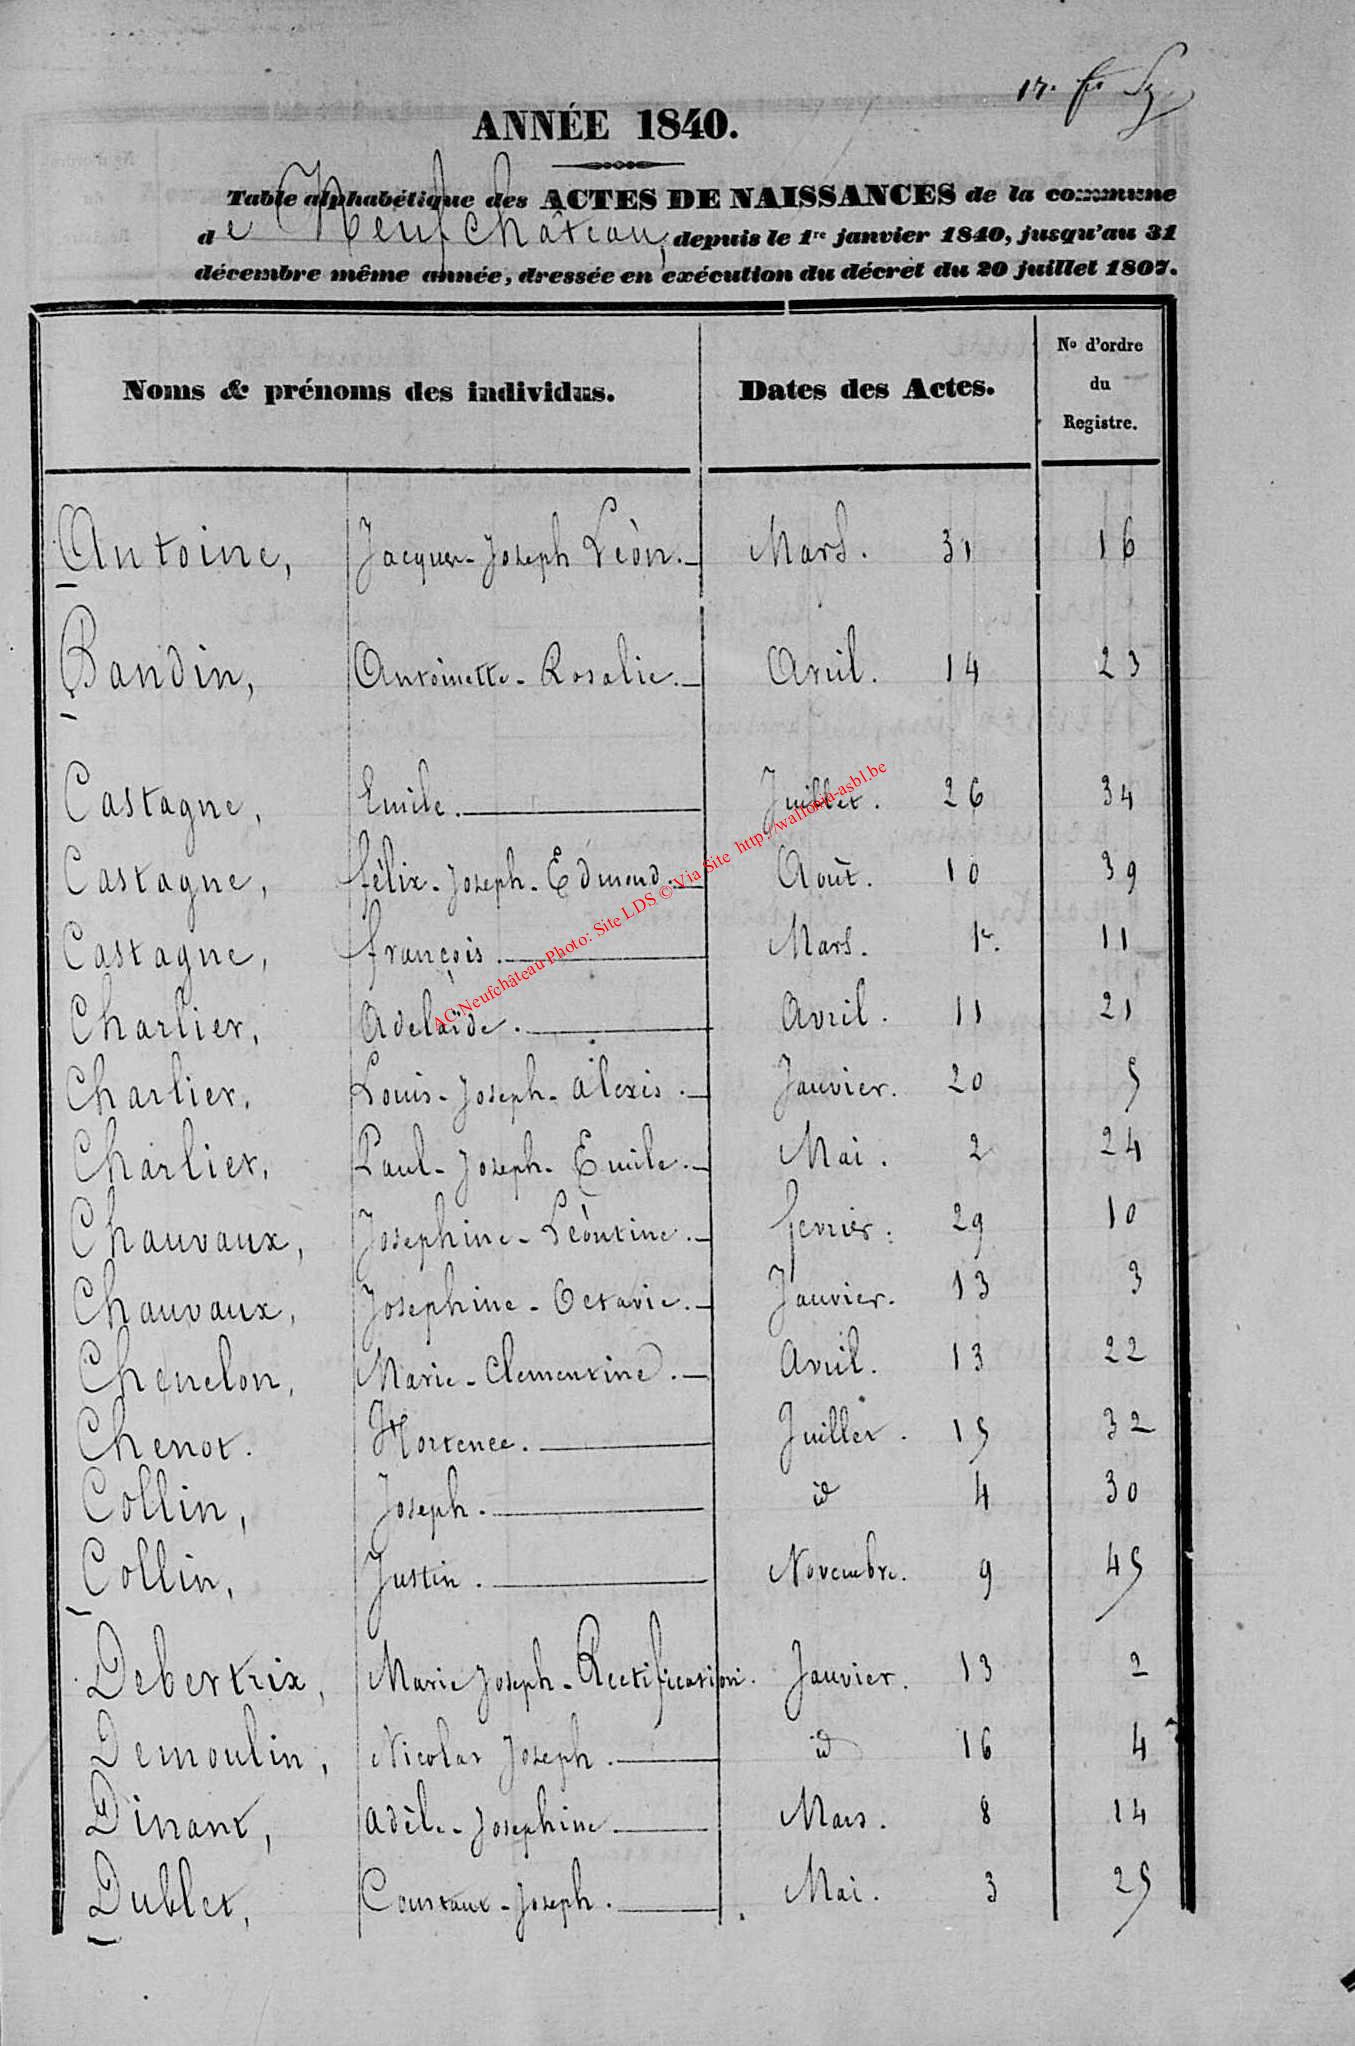 17.
ANNÉE 1840.
Table alphabétique des ACTES DE NAISSANCES de la commune
de Neufchâteau, depuis le 1re janvier 1840, jusqu'au 31
décembre même année, dressée en exécution du décret du 20 juillet 1807.
Noms & prénoms des individus. Dates des Actes. No d'ordre du Registre.
Antoine, Jacques-Joseph Léon. Mars. 31 16
Bandin, Antoinette-Rosalie. Avril. 14 23
Castagne, Emile. Juillet. 26 34
Castagne, félix-Joseph-Edmond. Août. 10 39
Castagne, françois. Mars. 1er. 11
Charlier, Adelaïde. Avril. 11 21
Charlier, Louis-Joseph-Alexis. Janvier. 20 5
Charlier, Paul-Joseph-Emile. Mai. 2 24
Chauvaux, Josephine-Léontine. fevrier. 29 10
Chauvaux, Josephine-Octavie. Janvier. 13 3
Chenelon, Marie-Clementine. Avril. 13 22
Chenot. Hortence. Juillet. 15 32
Collin, Joseph. id 4 30
Collin, Justin. Novembre. 9 45
Debertrix, Marie Joseph-Rectification. Janvier. 13 2
Demoulin, Nicolas Joseph. id 16 4
Dinant, Adèle-Josephine Mars. 8 14
Dublet, Constant-Joseph. Mai. 3 25
AC Neufchâteau Photo: Site LDS © Via Site http://wallonia-asbl.be